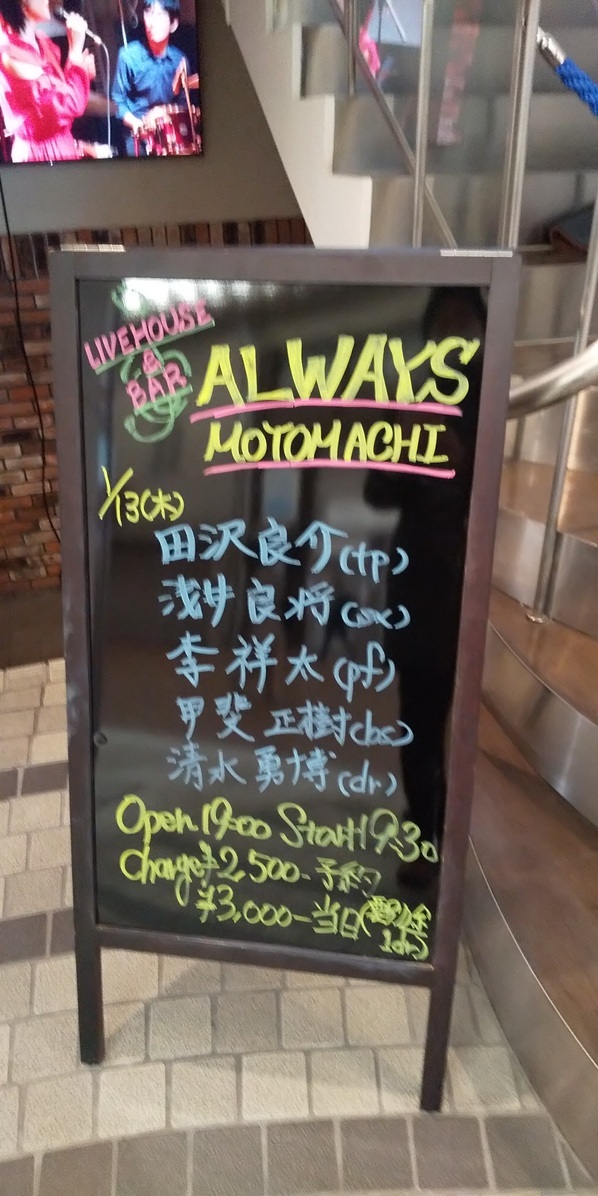 LIVEHOUSE
&
BAR
ALWAYS
MOTOMACHI
1/13(木)
田沢良介(tp)
浅井良将(sax)
李祥太(pf)
甲斐正樹(bs)
清水勇博(dr)
Open 19:00 Start 19:30
Charge ¥2,500-予約
¥3,000-当日(要別途
1dr)